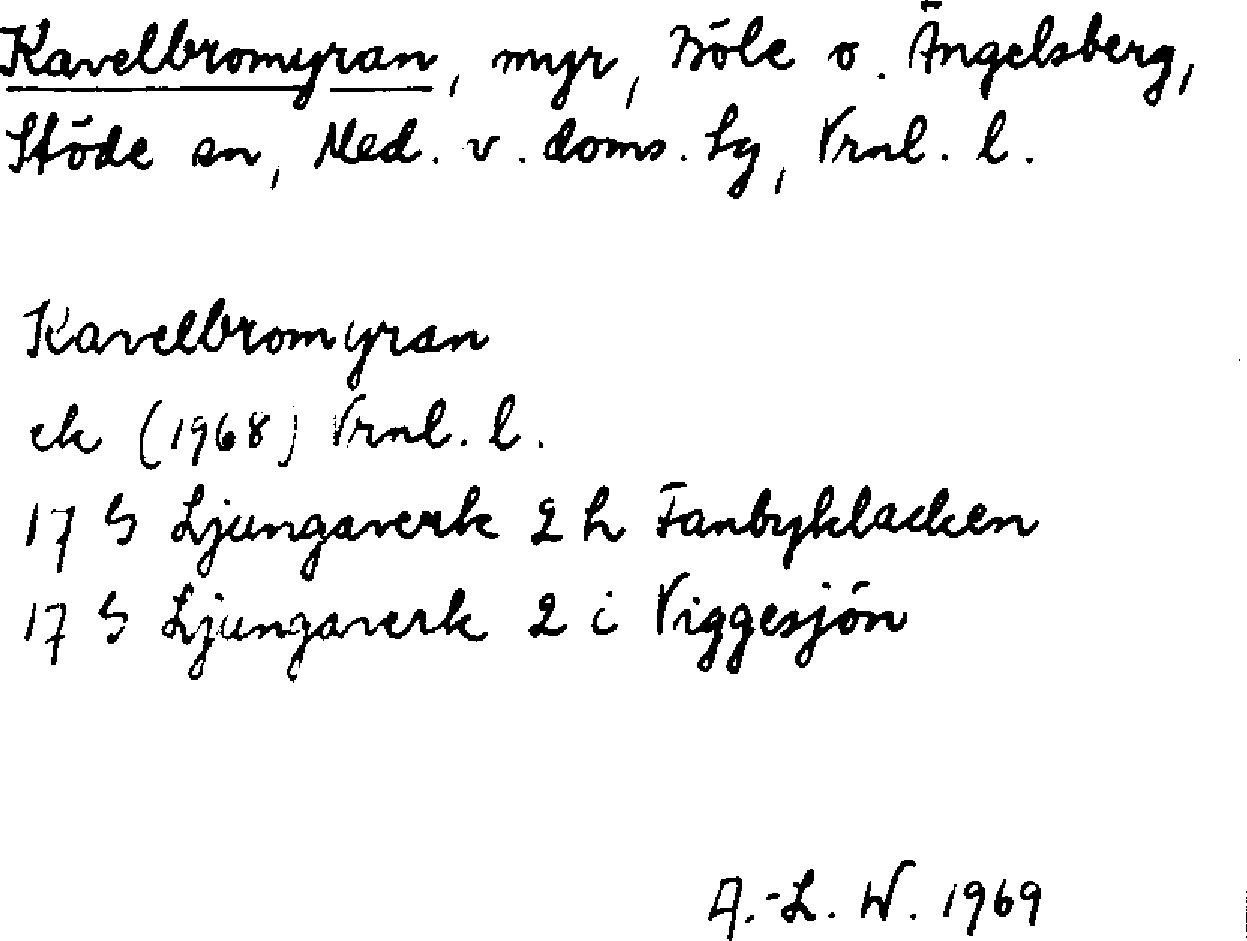 Kavelbromyran, myr, Böle o. Ängelsberg,
Stöde sn, Med. v. doms. lg, Vrnl. l.
Kavelbromyran
ek (1968) Vrnl. l.
17 G Ljungaverk 2 h Fanbyklacken
17 G Ljungaverk 2 i Viggesjön
A.-L. W. 1969